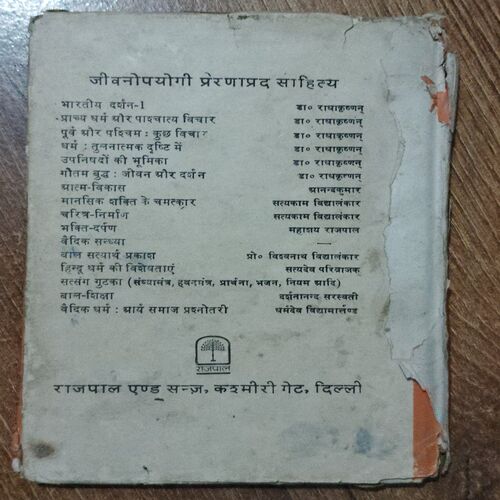 जीवनोपयोगी प्रेरणाप्रद साहित्य
भारतीय दर्शन-1 डा० राधाकृष्णन्
प्राच्य धर्म और पाश्चात्य विचार डा० राधाकृष्णन्
पूर्व और पश्चिम : कुछ विचार डा० राधाकृष्णन्
धर्म : तुलनात्मक दृष्टि में डा० राधाकृष्णन्
उपनिषदों की भूमिका डा० राधाकृष्णन्
गौतम बुद्ध : जीवन और दर्शन डा० राधाकृष्णन्
आत्म-विकास आनन्दकुमार
मानसिक शक्ति के चमत्कार सत्यकाम विद्यालंकार
चरित्र-निर्माण सत्यकाम विद्यालंकार
भक्ति-दर्पण महाशय राजपाल
वैदिक सन्ध्या
बाल सत्यार्थ प्रकाश प्रो० विश्वनाथ विद्यालंकार
हिन्दू धर्म की विशेषताएं सत्यदेव परिव्राजक
सत्संग गुटका (संध्यामंत्र, हवनमंत्र, प्रार्थना, भजन, नियम आदि)
बाल-शिक्षा दर्शनानन्द सरस्वती
वैदिक धर्म : आर्य समाज प्रश्नोतरी धर्मदेव विद्यामार्त्तण्ड
राजपाल
राजपाल एण्ड सन्ज़, कश्मीरी गेट, दिल्ली